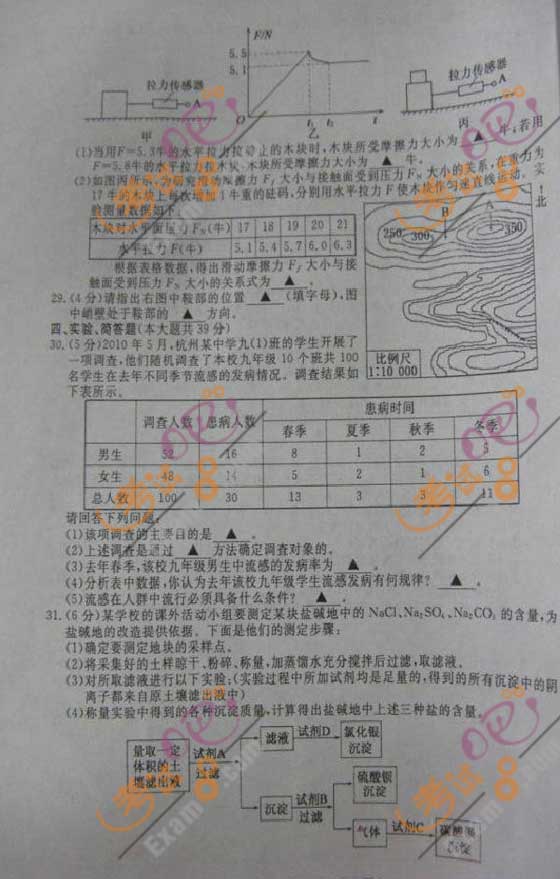 F/N
5.5
5.1
O
t₁ t₂ t
拉力传感器
A
甲
乙
拉力传感器
A
丙
(1)当用F=5.3牛的水平拉力拉静止的木块时,木块所受摩擦力大小为 ▲ 牛;若用
F=5.8牛的水平拉力拉木块,木块所受摩擦力大小为 ▲ 牛。
(2)如图丙所示,为研究滑动摩擦力Ff大小与接触面受到压力FN大小的关系,在重力为
17牛的木块上每次增加1牛重的砝码,分别用水平拉力F使木块作匀速直线运动,实
验测量数据如下:
木块对水平面压力FN(牛) 17 18 19 20 21
水平拉力F(牛) 5.1 5.4 5.7 6.0 6.3
根据表格数据,得出滑动摩擦力Ff大小与接
触面受到压力FN大小的关系式为 ▲ 。
北
B
A
250
300
350
比例尺
1:10 000
29.(4分)请指出右图中鞍部的位置 ▲ (填字母),图
中峭壁处于鞍部的 ▲ 方向。
四、实验、简答题(本大题共39分)
30.(5分)2010年5月,杭州某中学九(1)班的学生开展了
一项调查,他们随机调查了本校九年级10个班共100
名学生在去年不同季节流感的发病情况。调查结果如
下表所示。
调查人数 患病人数 患病时间
春季 夏季 秋季 冬季
男生 52 16 8 1 2 5
女生 48 14 5 2 1 6
总人数 100 30 13 3 3 11
请回答下列问题:
(1)该项调查的主要目的是 ▲ 。
(2)上述调查是通过 ▲ 方法确定调查对象的。
(3)去年春季,该校九年级男生中流感的发病率为 ▲ 。
(4)分析表中数据,你认为去年该校九年级学生流感发病有何规律? ▲ 。
(5)流感在人群中流行必须具备什么条件? ▲ 。
31.(6分)某学校的课外活动小组要测定某块盐碱地中的NaCl、Na₂SO₄、Na₂CO₃的含量,为
盐碱地的改造提供依据。下面是他们的测定步骤:
(1)确定要测定地块的采样点。
(2)将采集好的土样晾干、粉碎、称量,加蒸馏水充分搅拌后过滤,取滤液。
(3)对所取滤液进行以下实验:(实验过程中所加试剂均是足量的,得到的所有沉淀中的阴
离子都来自原土壤滤出液中)
(4)称量实验中得到的各种沉淀质量,计算得出盐碱地中上述三种盐的含量。
量取一定
体积的土
壤滤出液
试剂A
过滤
滤液
试剂D
氯化银
沉淀
沉淀
试剂B
过滤
硫酸钡
沉淀
气体
试剂C
沉淀
考试吧
Exam8.com